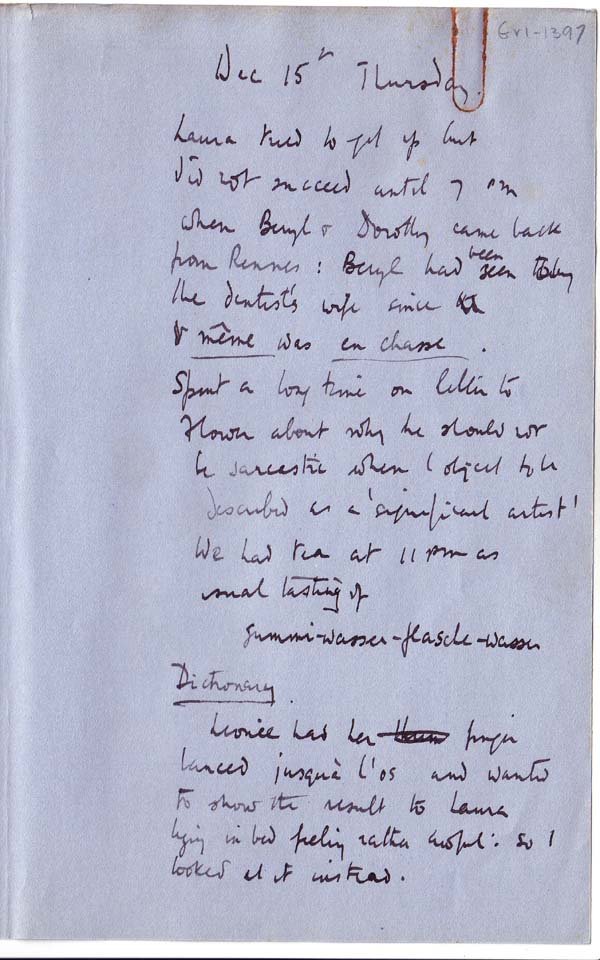 GV1-1397
Dec 15th Thursday.
Laura tried to get up but
did not succeed until 7 pm
when Beryl & Dorothy came back
from Rennes: Beryl had been seen by
the dentist's wife since
même was en chasse.
Spent a long time on letter to
about why he should not
be sarcastic when I object to be
described as a 'significant artist'
We had tea at 11 pm as
usual tasting of
gummi-wasser-flasche-wasser
Dictionary.
Leonie had her finger
lanced jusquà l'os and wanted
to show the result to Laura
lying in bed feeling rather awful: so I
looked at it instead.